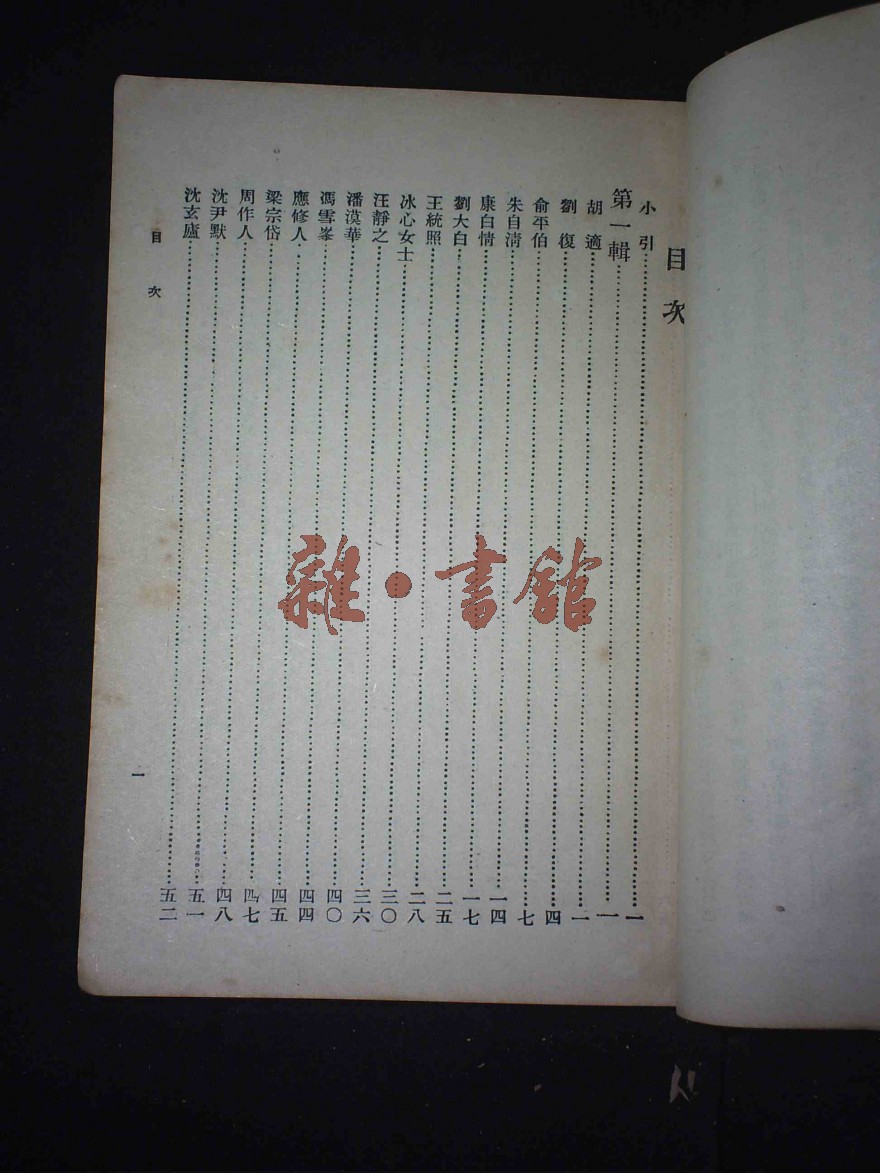 目次
小引……一
第一輯……一
胡適……一
劉復……四
俞平伯……七
朱自清……一四
康白情……一七
劉大白……二五
王統照……二八
冰心女士……三〇
汪靜之……三六
潘漠華……四〇
馮雪峯……四四
應修人……四五
梁宗岱……四七
周作人……四八
沈尹默……五一
沈玄廬……五二
目次
一
雜·書館